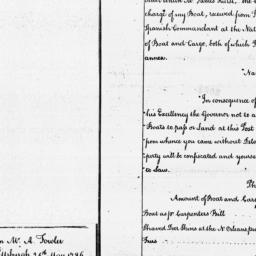 charge of my Boat, received from
Spanish Commandant at the Nat
of Boat and Cargo, both of which
annex.
"Na
In consequence of
his Excellency the Governor not to a
Boats to pass or Land at this Post
pon whence you came without
party will be confiscated and yourse
to Law.
Amount of Boat and Carg
Boat as pr Carpenters Bill
at the N Orleans
Furs
n Mr. A. Fowler
ittsburgh 25th May 1786